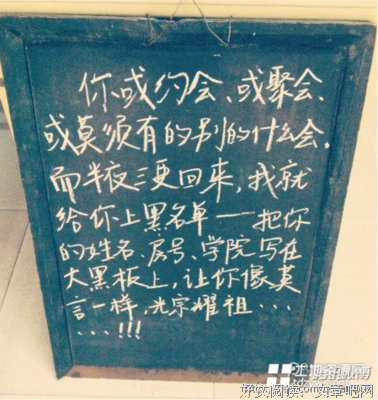 你或约会、或聚会、
或莫须有的别的什么会，
而半夜三更回来，我就
给你上黑名单——把你
的姓名、房号、学院写在
大黑板上，让你像莫
言一样，光宗耀祖…
…!!!